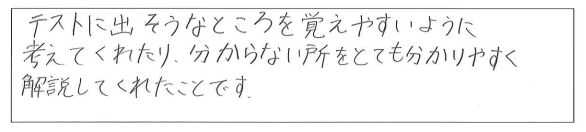 テストに出そうなところを覚えやすいように
考えてくれたり、分からない所をとても分かりやすく
解説してくれたことです.